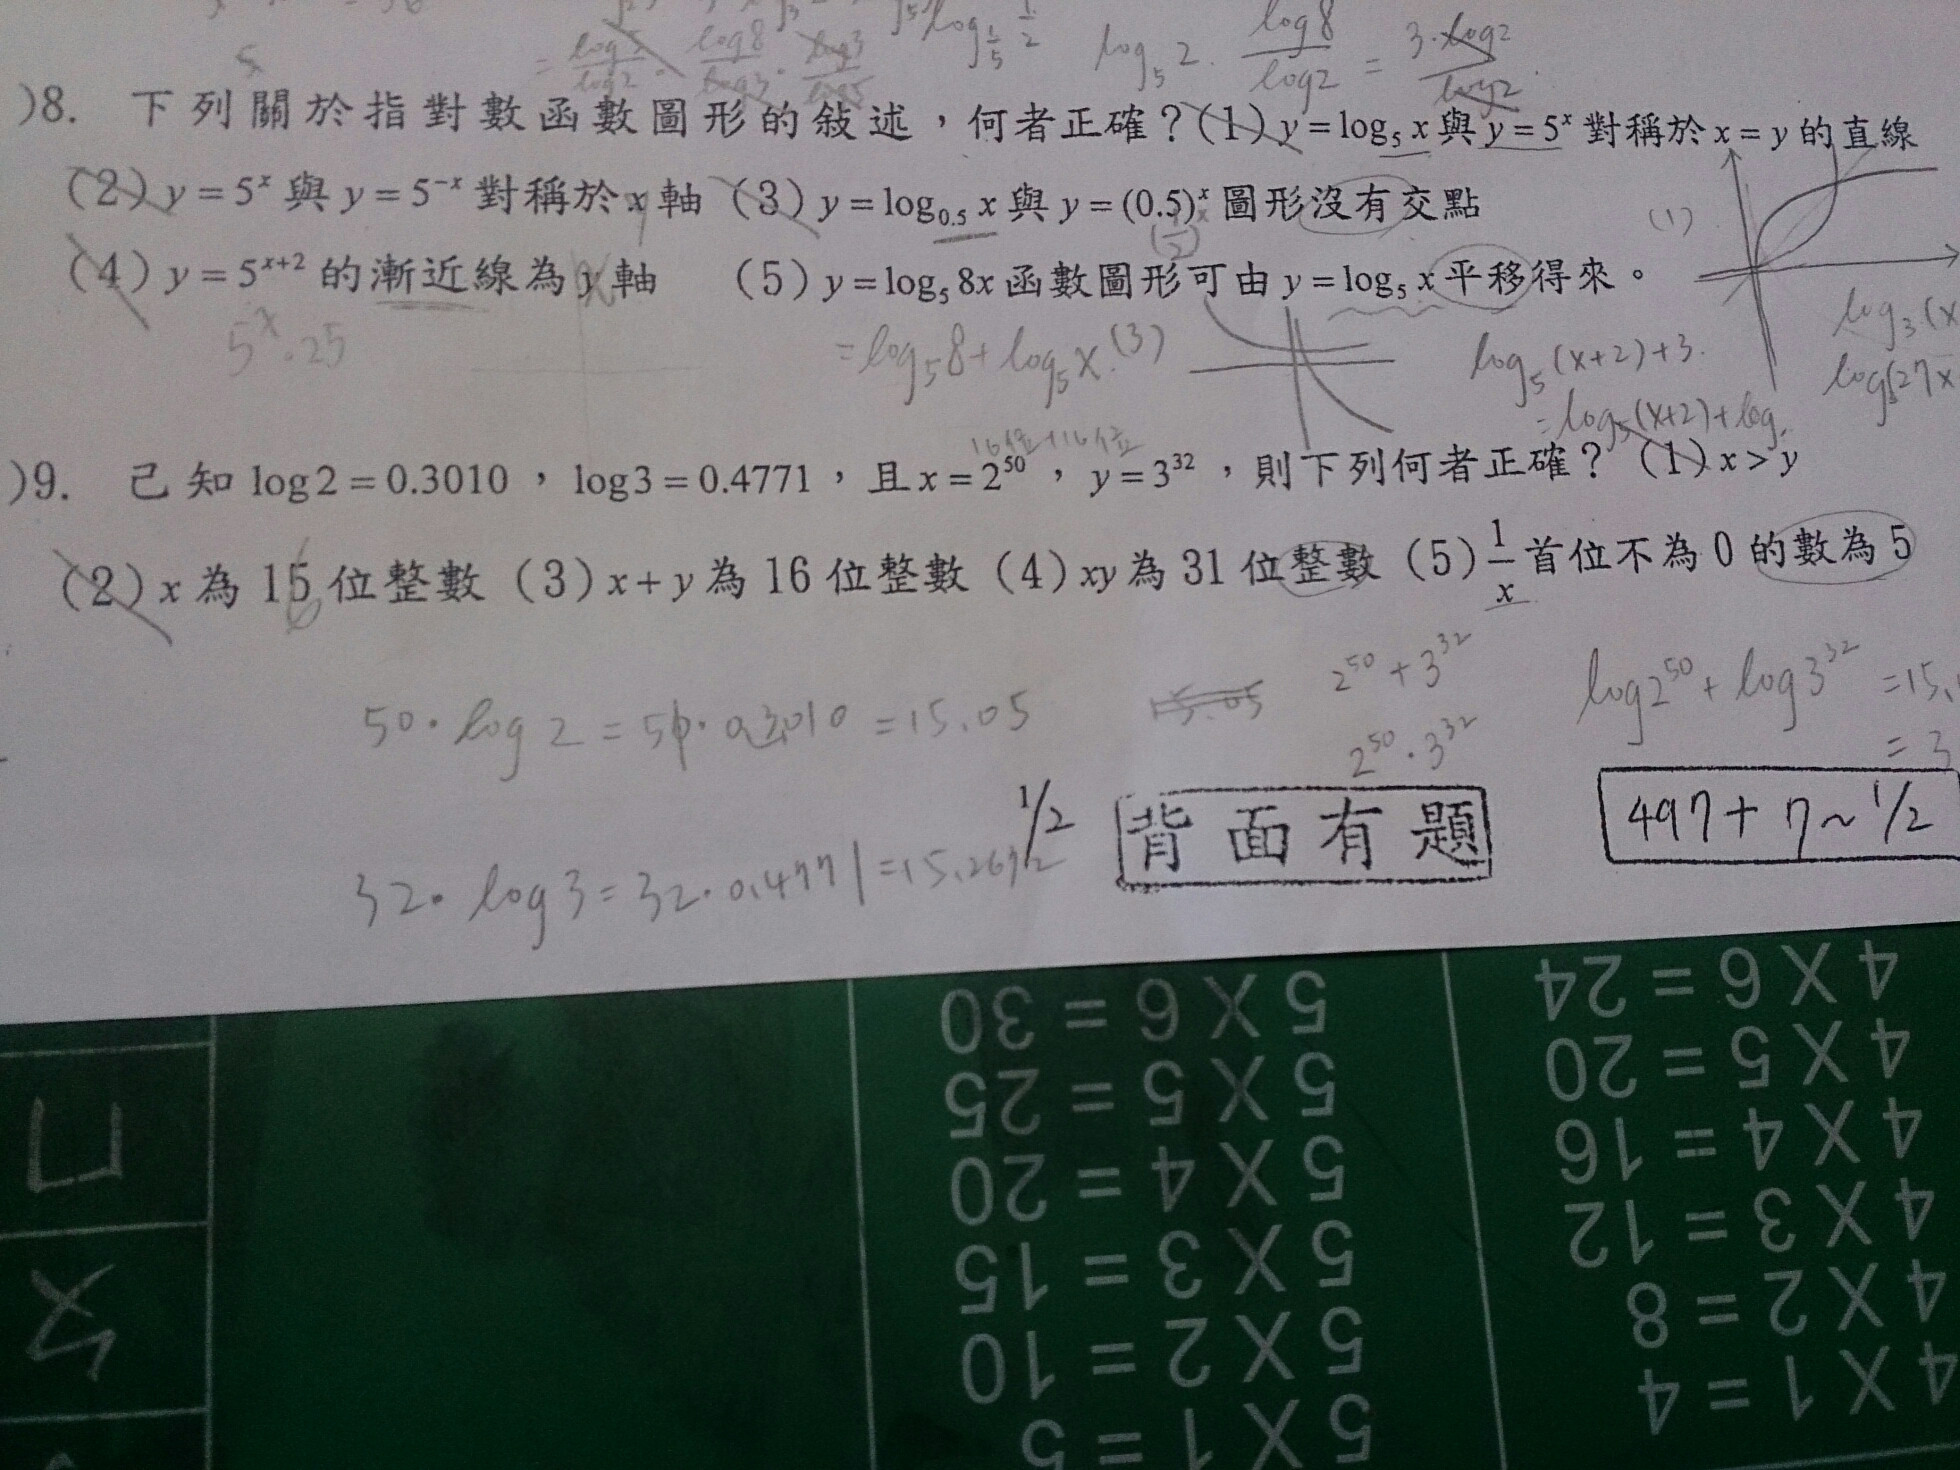 = log5/log2 · log8/log3 · log3/log5
log₅2 · log8/log2 = 3·log2/log2
)8. 下列關於指對數函數圖形的敘述,何者正確?(1) y = log₅ x 與 y = 5ˣ 對稱於 x = y 的直線
(2) y = 5ˣ 與 y = 5⁻ˣ 對稱於 x 軸 (3) y = log₀.₅ x 與 y = (0.5)ˣ 圖形沒有交點
(1)
(4) y = 5ˣ⁺² 的漸近線為 y 軸 (5) y = log₅ 8x 函數圖形可由 y = log₅ x 平移得來。
5ˣ·25
= log₅8 + log₅x
(3)
log₅(x+2)+3
= log₅(x+2)+log
)9. 已知 log 2 = 0.3010,log 3 = 0.4771,且 x = 2⁵⁰,y = 3³²,則下列何者正確? (1) x > y
(2) x 為 15 位整數 (3) x + y 為 16 位整數 (4) xy 為 31 位整數 (5) 1/x 首位不為 0 的數為 5
50·log2 = 50·0.3010 = 15.05
15.05
2⁵⁰ + 3³²
log2⁵⁰ + log3³² = 15.
2⁵⁰·3³²
= 3
32·log3 = 32·0.4771 = 15.2672
1/2
背面有題
497+7~1/2
5X6=30
4X6=24
5X5=25
4X5=20
5X4=20
4X4=16
5X3=15
4X3=12
5X2=10
4X2=8
5X1=5
4X1=4
ㄩ
ㄆ